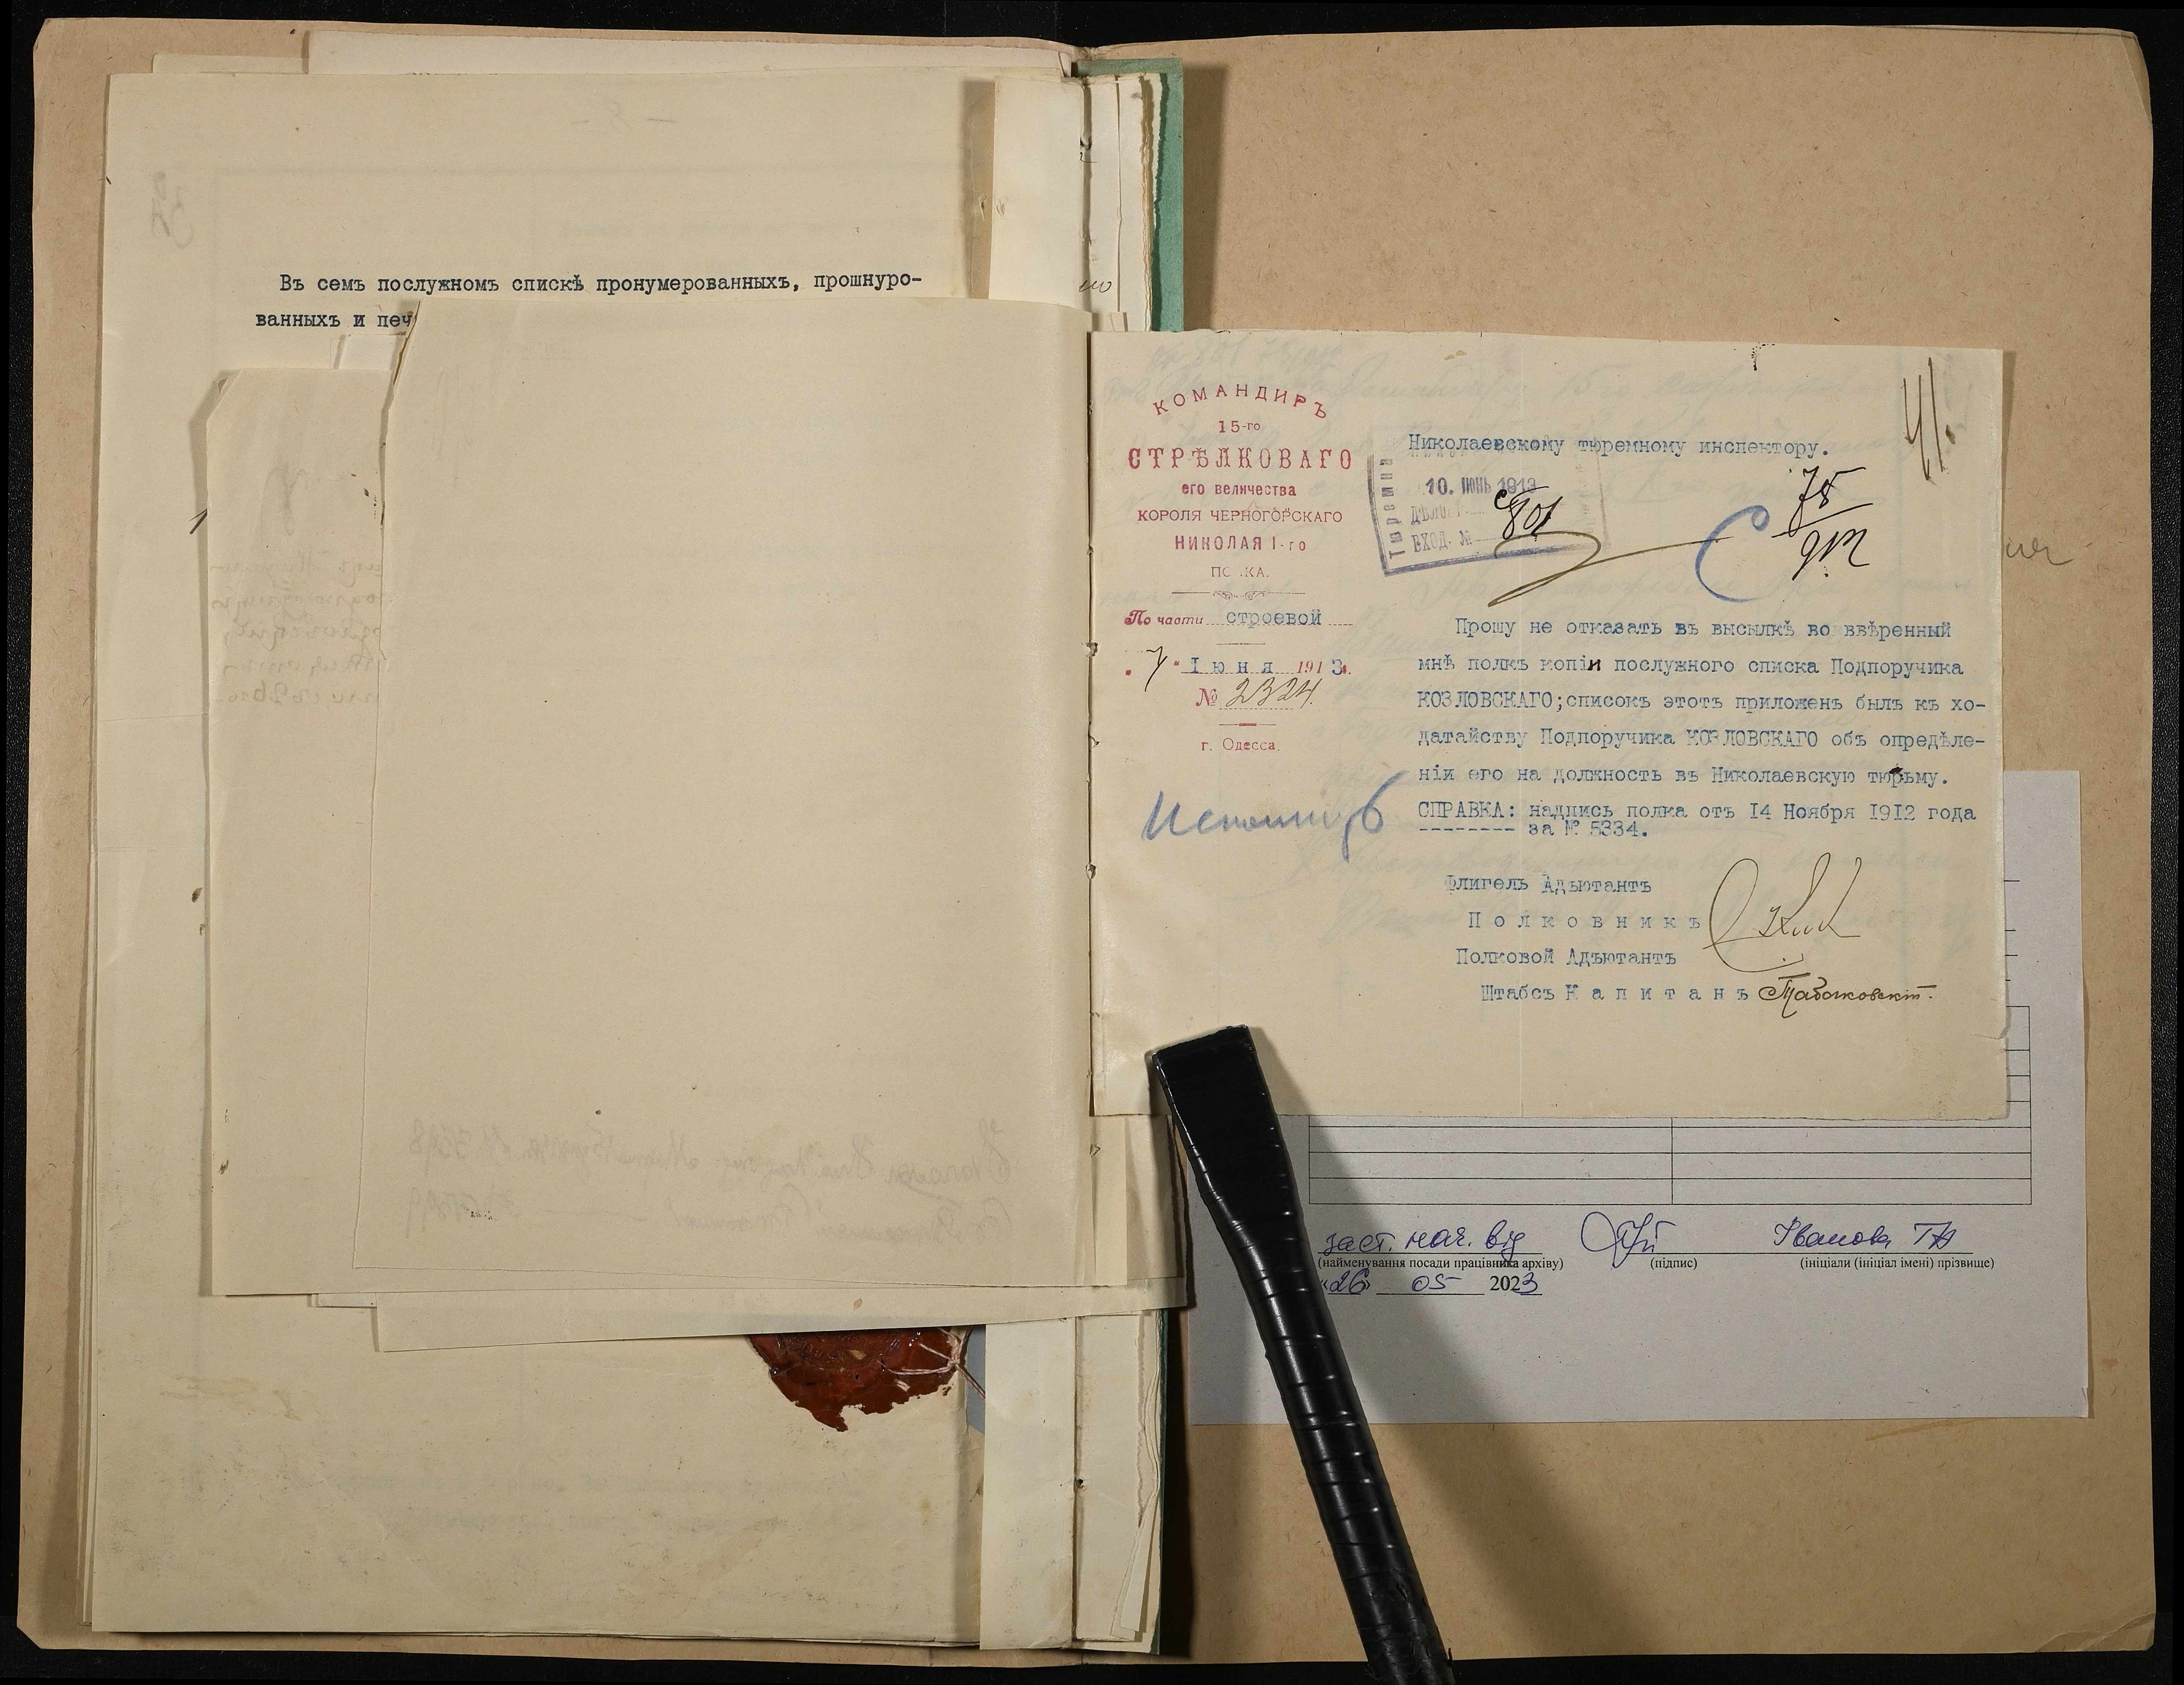 Въ семъ послужномъ спискѣ пронумерованныхъ, прошнуро-
ванныхъ и печ
КОМАНДИРЪ
15-го
СТРѢЛКОВАГО
его величества
КОРОЛЯ ЧЕРНОГОРСКАГО
НИКОЛАЯ I-го
ПО.КА.
По части строевой
"7" Iюня 1913г.
№ 2324.
г. Одесса.
41.
Николаевскому тюремному инспектору.
10. ИЮНЬ 1913
ВХОД. № 801
78
Прошу не отказать въ высылкѣ во ввѣренный
мнѣ полкъ копiи послужного списка Подпоручика
КОЗЛОВСКАГО;списокъ этотъ приложенъ былъ къ хо-
датайству Подпоручика КОЗЛОВСКАГО объ опредѣле-
нiи его на должность въ Николаевскую тюрьму.
СПРАВКА: надпись полка отъ 14 Ноября 1912 года
-------- за № 5334.
Флигель Адъютантъ
Полковникъ
Полковой Адъютантъ
Штабсъ Капитанъ
заст. нач. від Іванова ТА
(найменування посади працівника архіву) (підпис) (ініціали (ініціал імені) прізвище)
«26» 05 2023